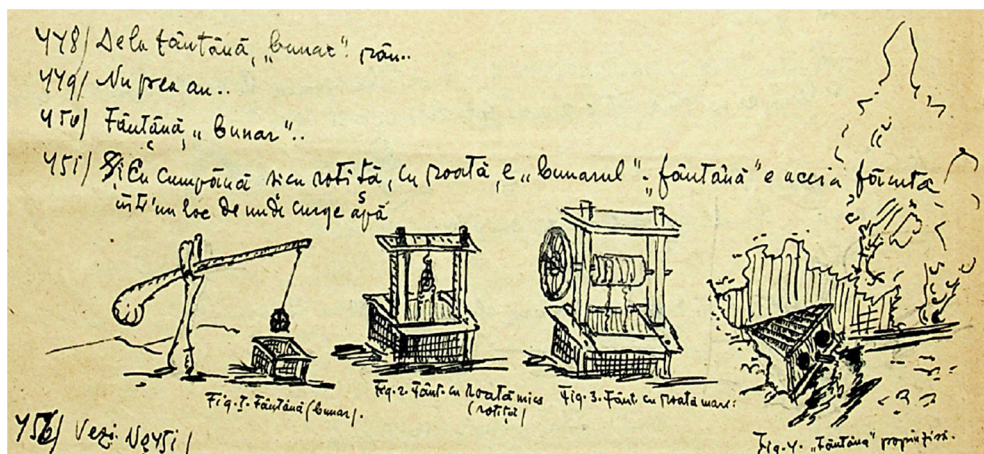 448/ Dela fântână, "bunar" rân..
449/ Nu prea au..
450/ Fântână, "bunar"..
451/ Și cu cumpănă și cu rotiță, cu roată, e "bunarul". "fântână" e aceia făcută
într'un loc de unde curge apă
Fig. 1. Fântână (bunar).
Fig. 2. Fânt. cu roată mică
(rotiță)
Fig. 3. Fânt. cu roată mare.
Fig. 4. "Fântână" propriu zisă.
Vezi No 451/